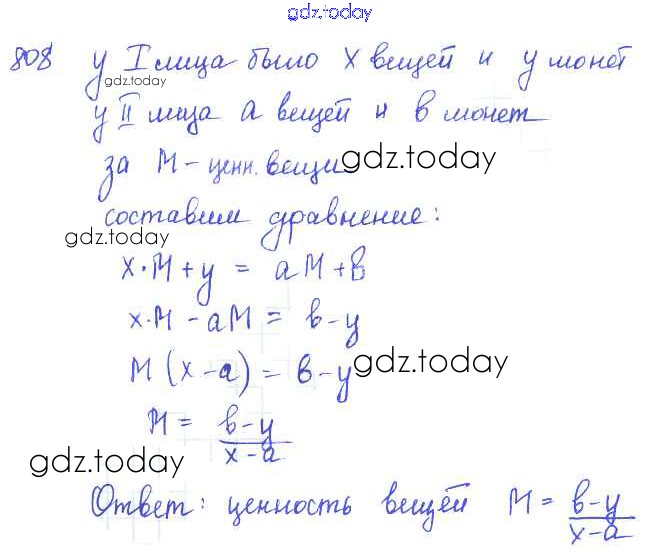 gdz.today
808 У I лица было x вещей и y монет
gdz.today
у II лица a вещей и в монет
за M - ценн. вещи
gdz.today
составим уравнение:
gdz.today
x·M + y = aM + в
x·M - aM = в - y
M (x - a) = в - y
gdz.today
M = в - y / x - a
gdz.today
Ответ: ценность вещей M = в - y / x - a
gdz.today